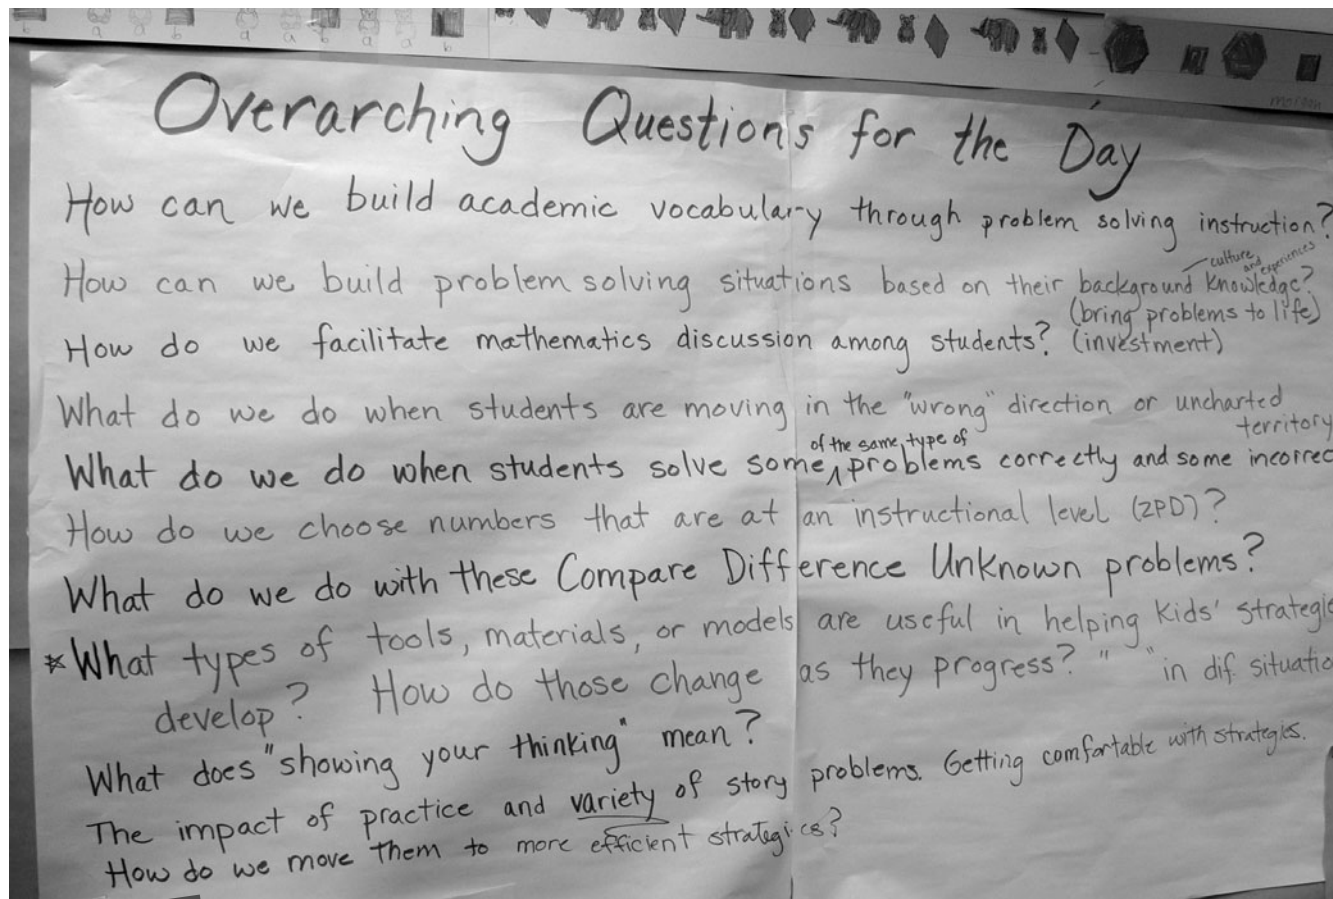 b a a b a a b a a b
morgan
Overarching Questions for the Day
How can we build academic vocabulary through problem solving instruction?
culture and experiences
How can we build problem solving situations based on their background knowledge?
(bring problems to life)
How do we facilitate mathematics discussion among students? (investment)
What do we do when students are moving in the "wrong" direction or uncharted
territory
of the same type of
What do we do when students solve some problems correctly and some incorrec
How do we choose numbers that are at an instructional level (ZPD)?
What do we do with these Compare Difference Unknown problems?
*What types of tools, materials, or models are useful in helping kids' strategi
develop? How do those change as they progress? " " in dif. situatio
What does "showing your thinking" mean?
The impact of practice and variety of story problems. Getting comfortable with strategies.
How do we move them to more efficient strategies?